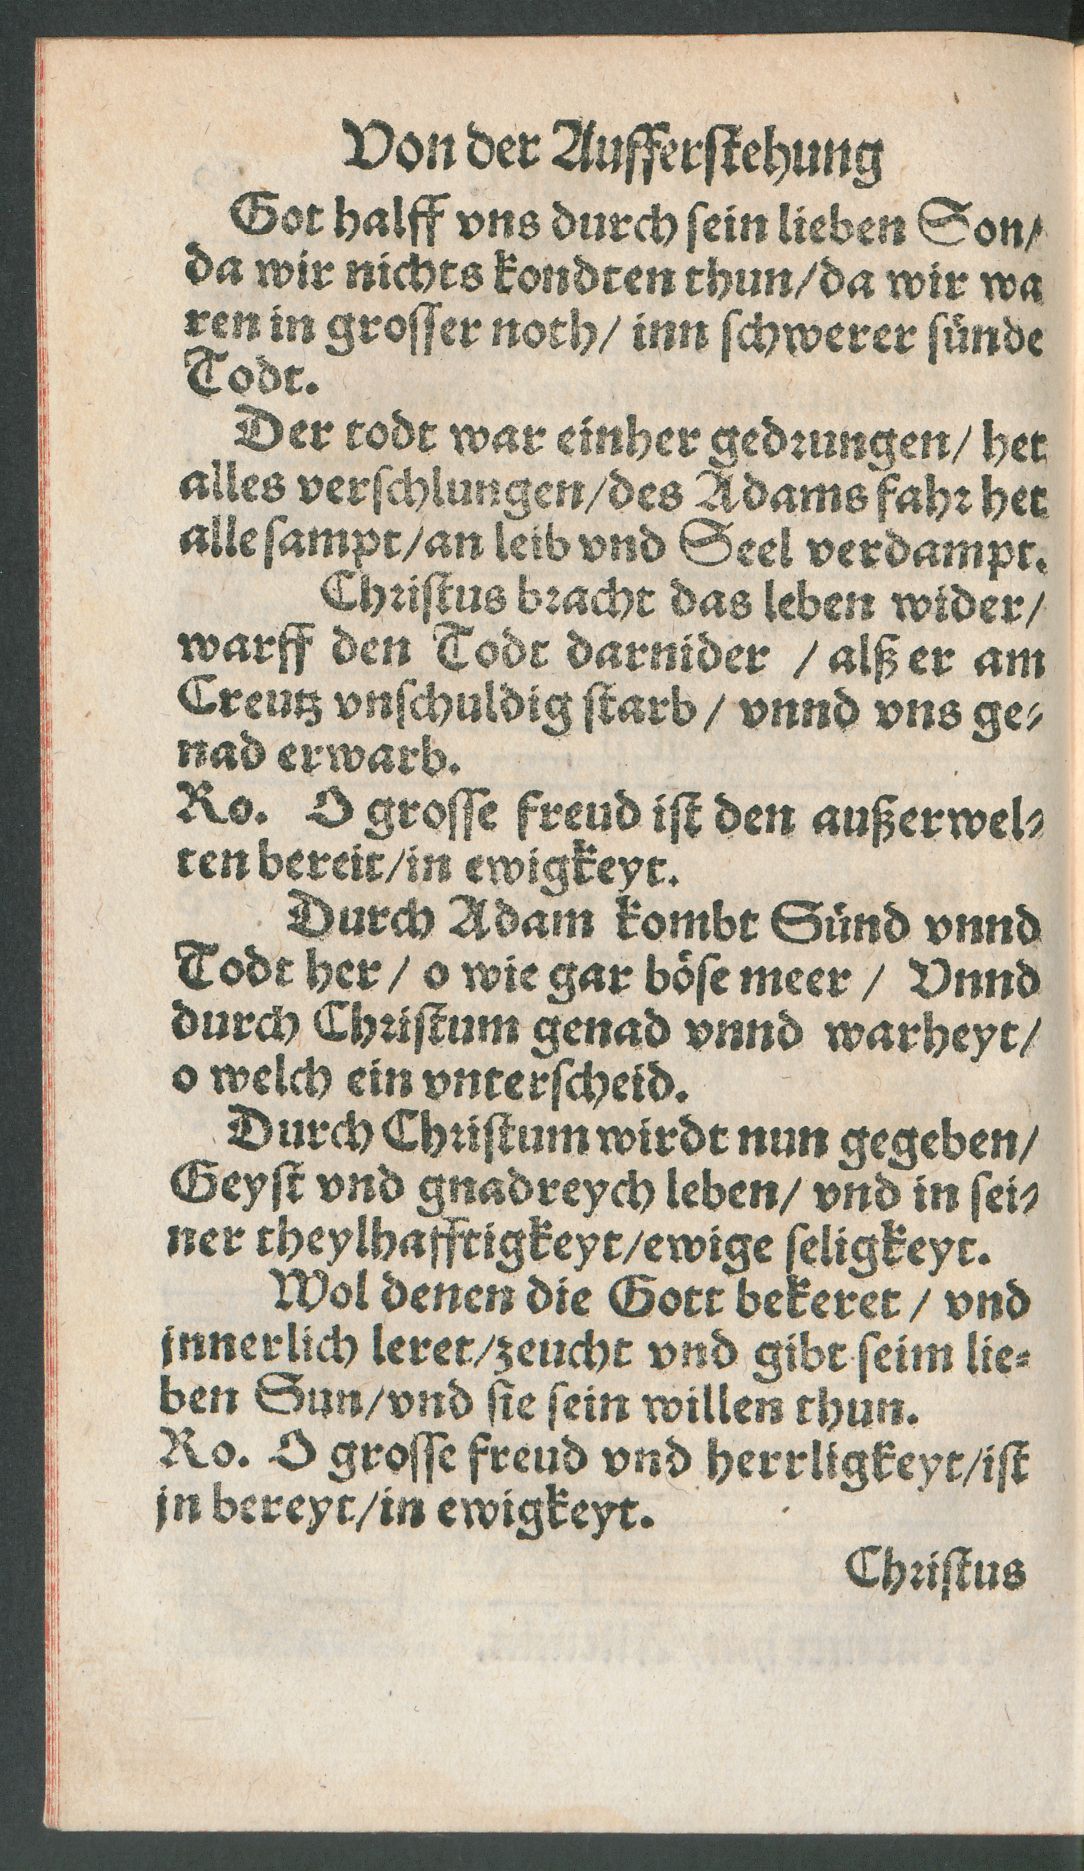 Von der Aufferstehung
Got halff vns durch sein lieben Son/
da wir nichts kondten thun/da wir wa
ren in grosser noth/ inn schwerer sünde
Todt.
Der todt war einher gedrungen/ het
alles verschlungen/des Adams fahr het
alle sampt/an leib vnd Seel verdampt.
Christus bracht das leben wider/
warff den Todt darnider / alß er am
Creutz vnschuldig starb / vnnd vns ge⸗
nad erwarb.
Ro. O grosse freud ist den außerwel⸗
ten bereit/in ewigkeyt.
Durch Adam kombt Sünd vnnd
Todt her / o wie gar böse meer / Vnnd
durch Christum genad vnnd warheyt/
o welch ein vnterscheid.
Durch Christum wirdt nun gegeben/
Geyst vnd gnadreych leben/ vnd in sei⸗
ner theylhafftigkeyt/ewige seligkeyt.
Wol denen die Gott bekeret / vnd
jnnerlich leret/zeucht vnd gibt seim lie⸗
ben Sun/vnd sie sein willen thun.
Ro. O grosse freud vnd herrligkeyt/ist
jn bereyt/in ewigkeyt.
Christus